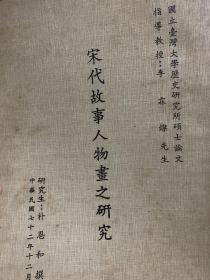 國立臺灣大學歷史研究所碩士論文
指導教授：李霖燦先生
宋代故事人物畫之研究
研究生：朴恩和撰
中華民國七十二年十二月